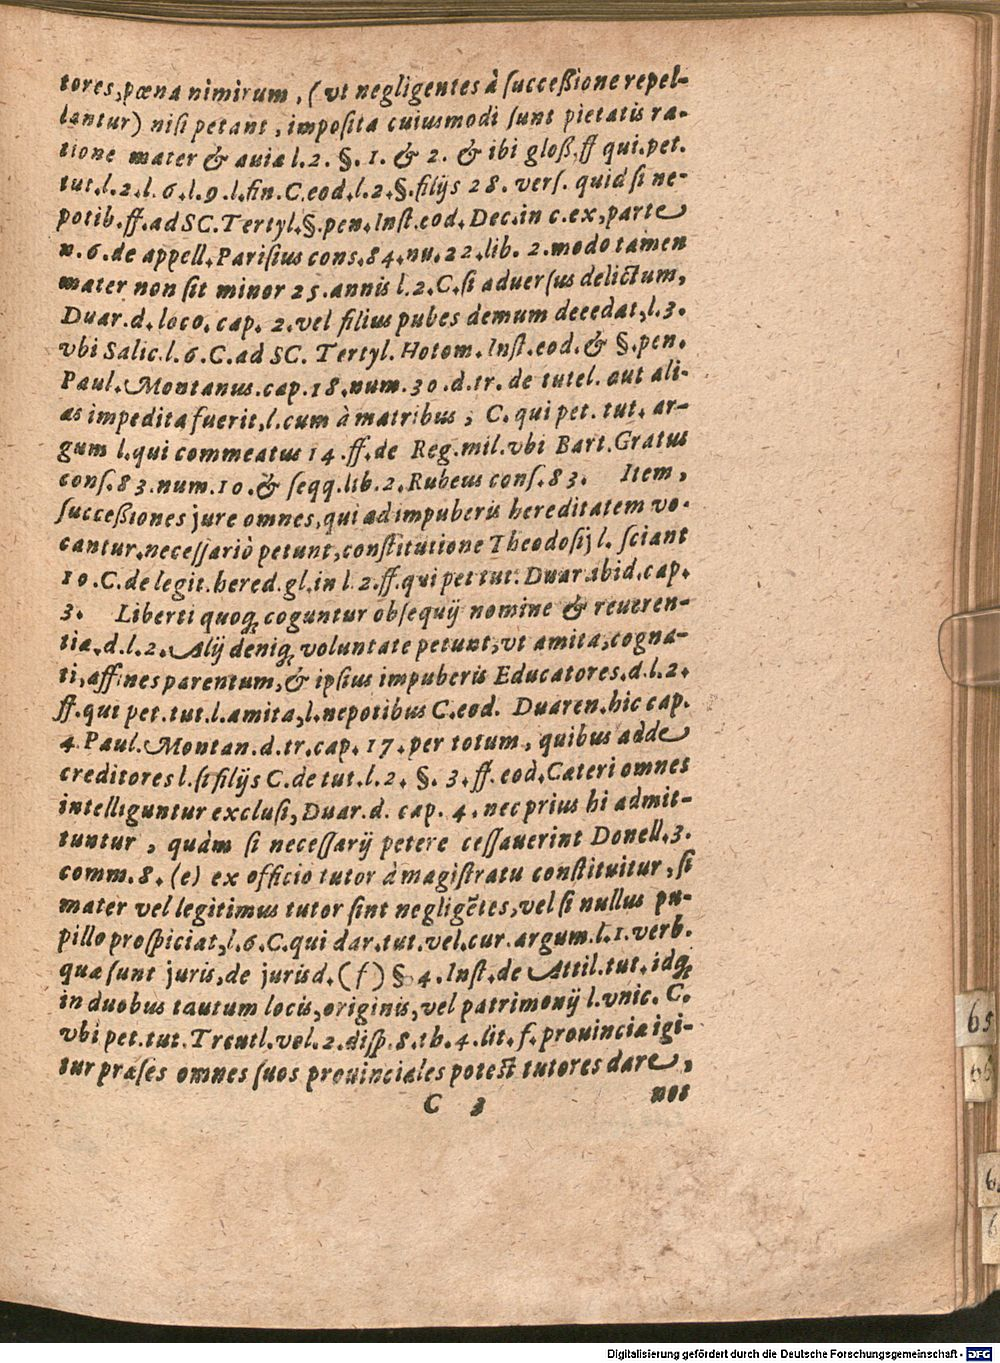 tores, pœna nimirum, (vt negligentes à successione repel-
lantur) nisi petant, imposita cuiusmodi sunt pietatis ra-
tione mater & auia l. 2. §. 1. & 2. & ibi gloß. ff qui. pet.
tut. l. 2. l. 6. l. 9. l. fin. C. eod. l. 2. §. filijs 28. vers. quid si ne-
potib. ff. ad SC. Tertyl. §. pen. Inst. eod. Dec. in c. ex, parte
n. 6. de appell. Parisius cons. 84. nu. 22. lib. 2. modo tamen
mater non sit minor 25. annis l. 2. C. si aduersus delictum,
Duar. d. loco. cap. 2. vel filius pubes demum decedat, l. 3.
vbi Salic. l. 6. C. ad SC. Tertyl. Hotom. Inst. eod. & §. pen.
Paul. Montanus. cap. 18. num. 30. d. tr. de tutel. aut ali-
as impedita fuerit, l. cum à matribus, C. qui pet. tut. ar-
gum l. qui commeatus 14. ff. de Reg. mil. vbi Bart. Gratus
cons. 83. num. 10. & seqq. lib. 2. Rubeus cons. 83. Item,
successiones jure omnes, qui ad impuberis hereditatem vo-
cantur, necessariò petunt, constitutione Theodosij l. sciant
10. C. de legit. hered. gl. in l. 2. ff. qui pet tut. Duar ibid. cap.
3. Liberti quoq; coguntur obsequij nomine & reueren-
tiæ, d. l. 2. Alij deniq; voluntate petunt, vt amita, cogna-
ti, affines parentum, & ipsius impuberis Educatores. d. l. 2.
ff. qui pet. tut. l. amita, l. nepotibus C. eod. Duaren. hic cap.
4 Paul. Montan. d. tr. cap. 17. per totum, quibus adde
creditores l. si filijs C. de tut. l. 2. §. 3. ff. eod. Cæteri omnes
intelliguntur exclusi, Duar. d. cap. 4. nec prius hi admit-
tuntur, quàm si necessarij petere cessauerint Donell. 3.
comm. 8. (e) ex officio tutor à magistratu constituitur, si
mater vel legitimus tutor sint negligẽtes, vel si nullus pu-
pillo prospiciat, l. 6. C. qui dar. tut. vel. cur. argum. l. 1. verb.
quæ sunt juris, de jurisd. (f) § 4. Inst. de Attil. tut. idq;
in duobus tautum locis, originis, vel patrimonij l. vnic. C.
vbi pet. tut. Treutl. vol. 2. disp. 8. th. 4. lit. f. prouinciæ igi-
tur præses omnes suos prouinciales potest tutores dare,
C 3 nos
65
Digitalisierung gefördert durch die Deutsche Forschungsgemeinschaft - DFG